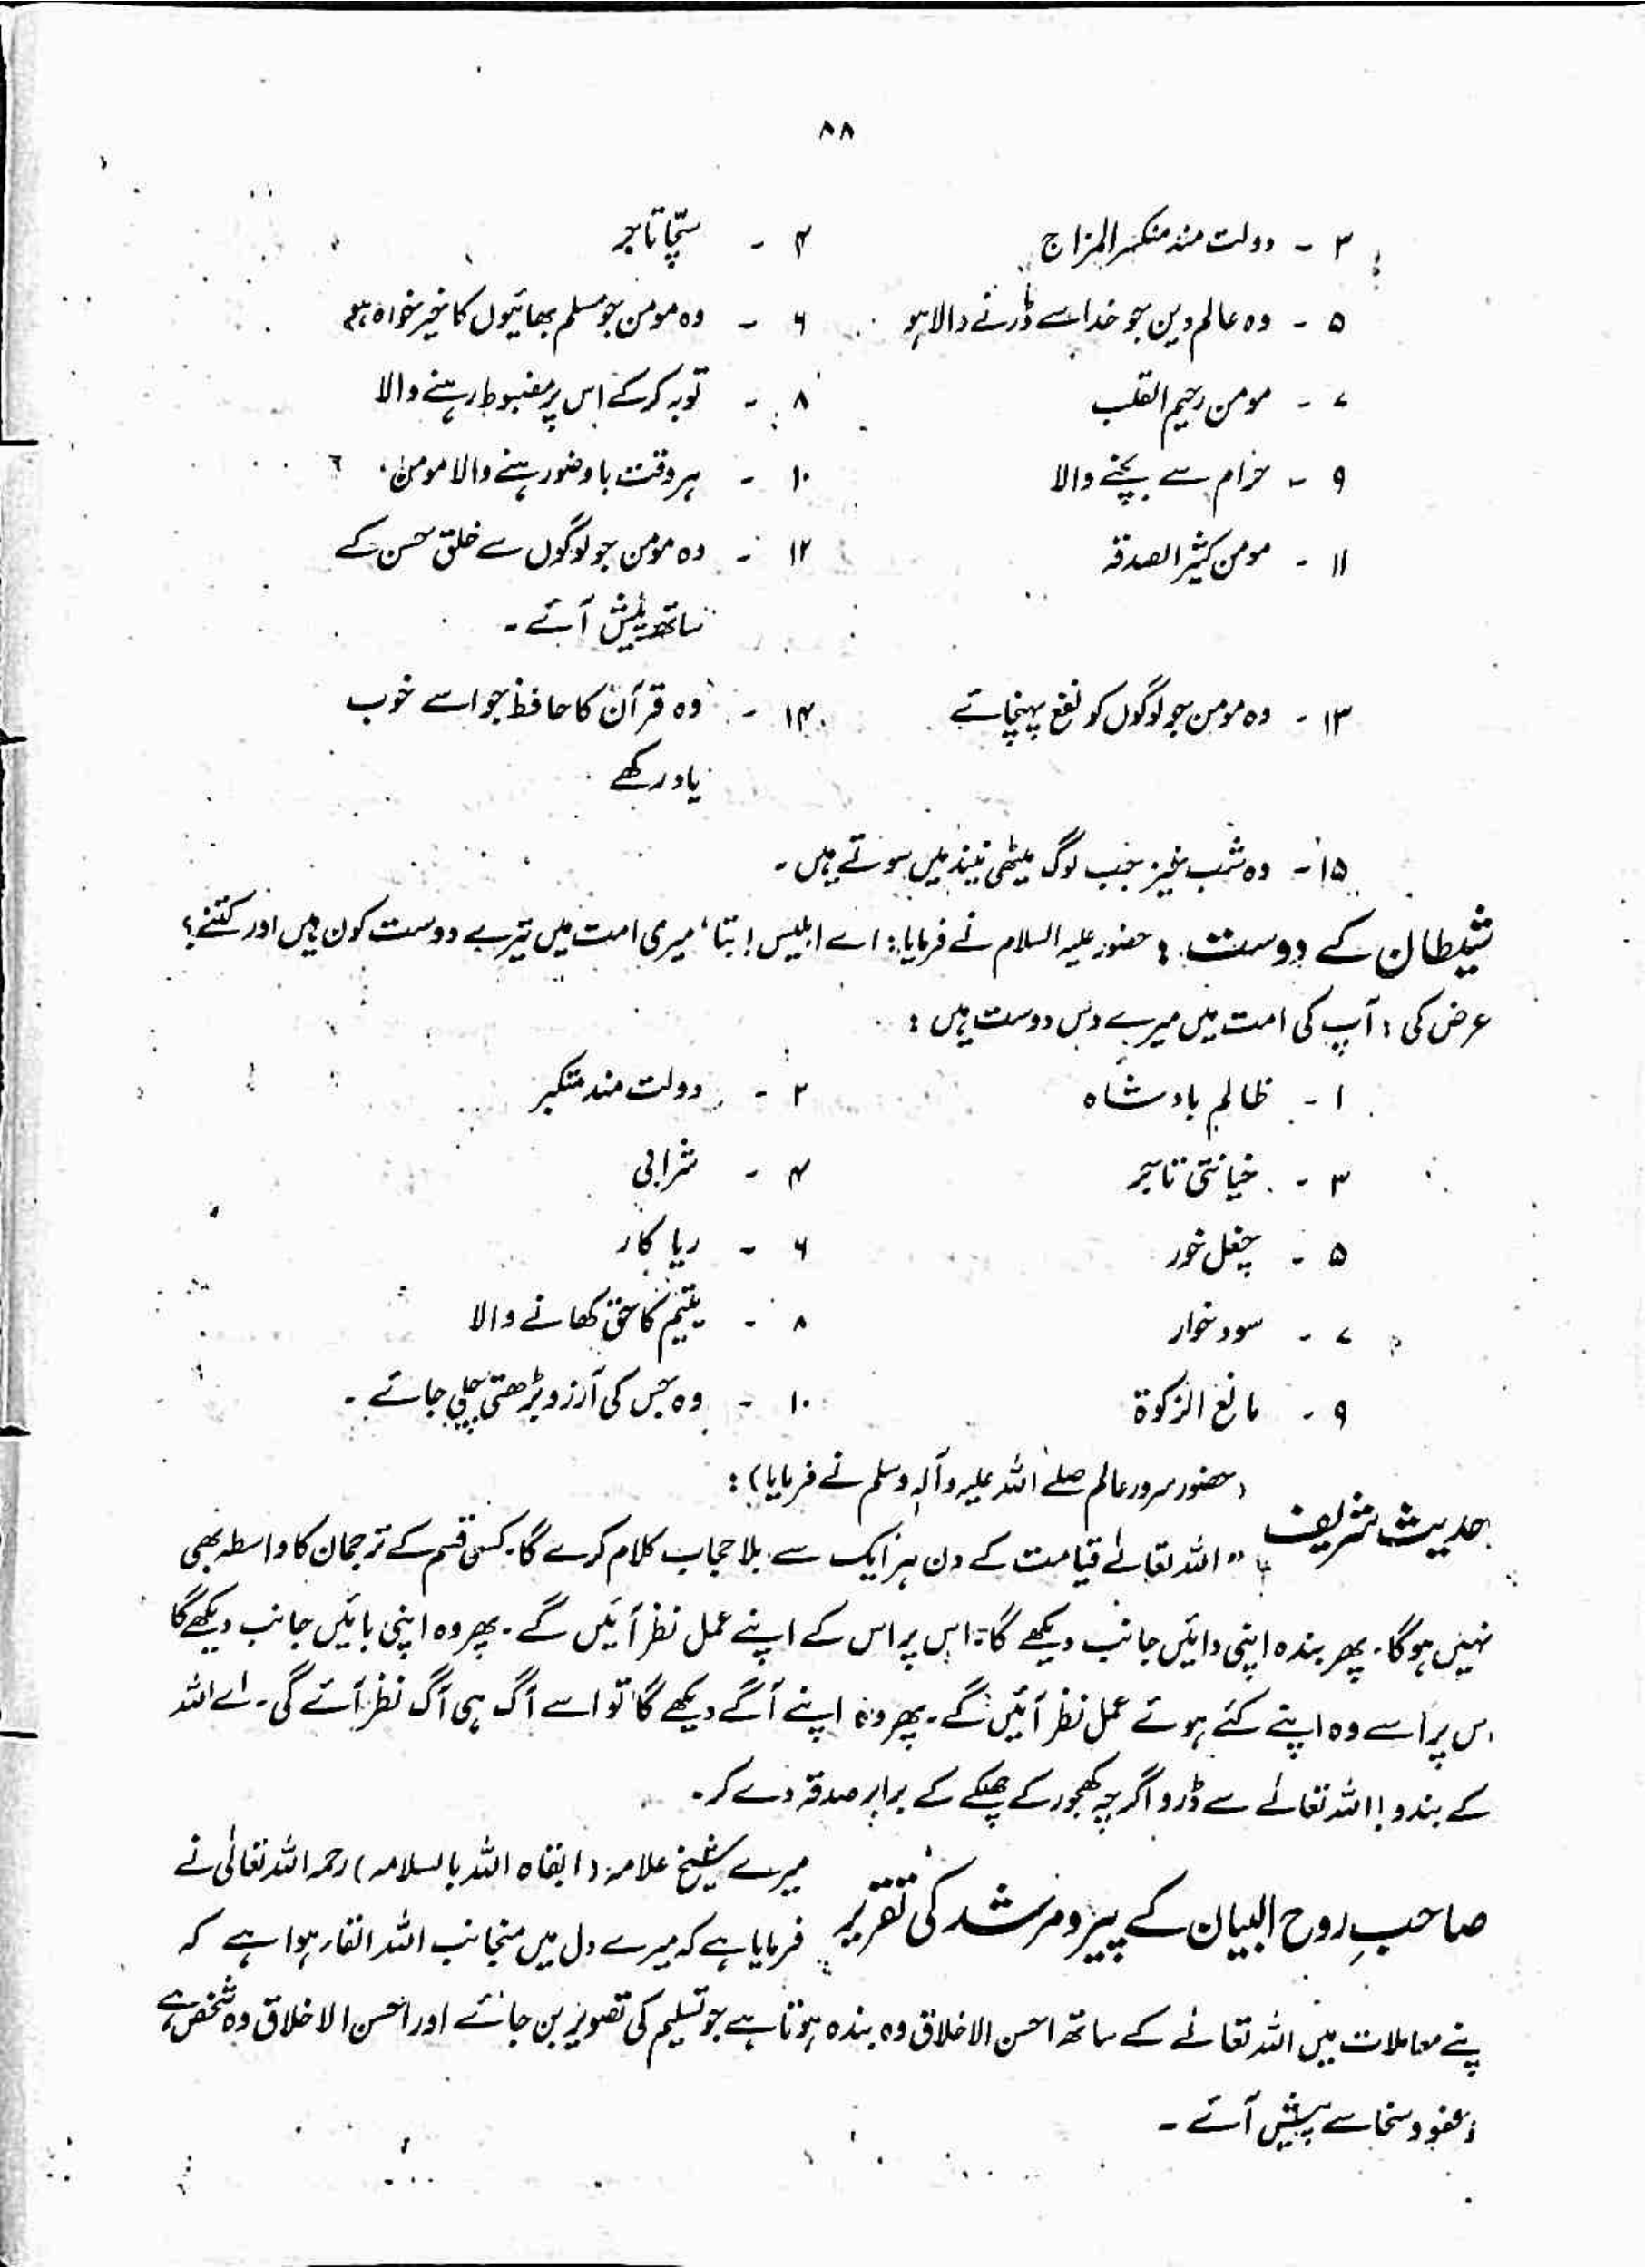 ۸۸
۳ - دولت مند منکسر المزاج ۴ - سچّا تاجر
۵ - وہ عالم دین جو خدا سے ڈرنے والا ہو ۶ - وہ مومن جو مسلم بھائیوں کا خیر خواہ ہو
۷ - مومن رحیم القلب ۸ - توبہ کرکے اس پر مضبوط رہنے والا
۹ - حرام سے بچنے والا ۱۰ - ہر وقت باوضو رہنے والا مومن
۱۱ - مومن کثیر الصدقہ ۱۲ - وہ مومن جو لوگوں سے خلق حسن کے
ساتھ پیش آئے -
۱۳ - وہ مومن جو لوگوں کو نفع پہنچائے ۱۴ - وہ قرآن کا حافظ جو اسے خوب
یاد رکھے
۱۵ - وہ شب خیز جب لوگ میٹھی نیند میں سوتے ہیں -
شیطان کے دوست : حضور علیہ السلام نے فرمایا: اے ابلیس! بتا، میری امت میں تیرے دوست کون ہیں اور کتنے؟
عرض کی : آپ کی امت میں میرے دس دوست ہیں :
۱ - ظالم بادشاہ ۲ - دولت مند متکبر
۳ - خیانتی تاجر ۴ - شرابی
۵ - چغل خور ۶ - ریا کار
۷ - سود خوار ۸ - یتیم کا حق کھانے والا
۹ - مانع الزکوۃ ۱۰ - وہ جس کی آرزو بڑھتی چلی جائے -
(حضور سرور عالم صلے اللہ علیہ وآلہ وسلم نے فرمایا) :
حدیث شریف " اللہ تعالےٰ قیامت کے دن ہر ایک سے بلا حجاب کلام کرے گا۔ کسی قسم کے ترجمان کا واسطہ بھی
نہیں ہوگا۔ پھر بندہ اپنی دائیں جانب دیکھے گا، اس پر اس کے اپنے عمل نظر آئیں گے۔ پھر وہ اپنی بائیں جانب دیکھے گا
اس پر اسے وہ اپنے کئے ہوئے عمل نظر آئیں گے۔ پھر وہ اپنے آگے دیکھے گا تو اسے آگ ہی آگ نظر آئے گی۔ اے اللہ
کے بندو! اللہ تعالےٰ سے ڈرو اگرچہ کھجور کے چھلکے کے برابر صدقہ دے کر۔
میرے شیخ علامہ (ابقاہ اللہ بالسلامہ) رحمہ اللہ تعالیٰ نے
صاحبِ روح البیان کے پیر و مرشد کی تقریر فرمایا ہے کہ میرے دل میں منجانب اللہ القاء ہوا ہے کہ
پنے معاملات میں اللہ تعالےٰ کے ساتھ احسن الاخلاق وہ بندہ ہوتا ہے جو تسلیم کی تصویر بن جائے اور احسن الاخلاق وہ شخص ہے
عفو و سخا سے پیش آئے -